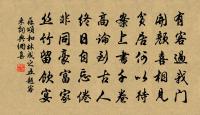 有客過我門
開顏喜相見
貧居何以待
案上書千卷
高論到古人
終日自忘倦
非同豪富家
絲竹留飲宴
和林成之五題客
來詞典網集